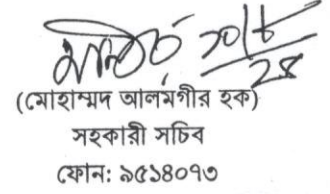 (মোহাম্মদ আলমগীর হক)
সহকারী সচিব
ফোন: ৯৫১৪০৭৩